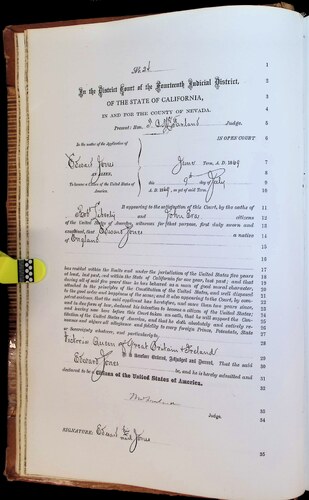 No. 24
1
In the District Court of the Fourteenth Judicial District,
2
OF THE STATE OF CALIFORNIA,
3
IN AND FOR THE COUNTY OF NEVADA.
4
Present: Hon. T. B. McFarland Judge.
5
IN OPEN COURT
6
In the matter of the Application of
Edward Jones
7
AN ALIEN,
June Term, A. D. 1869
8
To become a Citizen of the United States of
America.
this 9th day of July
9
A. D. 1869, as yet of said Term.
10
It appearing to the satisfaction of this Court, by the oaths of
11
Liberty and John citizens
12
of the United States of America, witnesses for that purpose, first duly sworn and
13
examined, that Edward Jones a native
14
of England
15
has resided within the limits and under the jurisdiction of the United States five years
16
at least, last past, and within the State of California for one year, last past; and that
17
during all of said five years' time he has behaved as a man of good moral character,
18
attached to the principles of the Constitution of the United States, and well disposed
19
to the good order and happiness of the same; and it also appearing to the Court, by com-
20
petent evidence, that the said applicant has heretofore, and more than two years since,
21
and in due form of law, declared his intention to become a citizen of the United States;
22
and having now here before this Court taken an oath, that he will support the Con-
23
stitution of the United States of America, and that he doth absolutely and entirely re-
24
nounce and abjure all allegiance and fidelity to every foreign Prince, Potentate, State
25
or Sovereignty whatever, and particularly to
26
Victoria Queen of Great Britain & Ireland
27
28
It is therefore Ordered, Adjudged and Decreed, That the said
Edward Jones
29
be, and he is hereby admitted and
declared to be a Citizen of the United States of America.
30
31
Judge.
32
33
SIGNATURE: Edward Jones
34
35